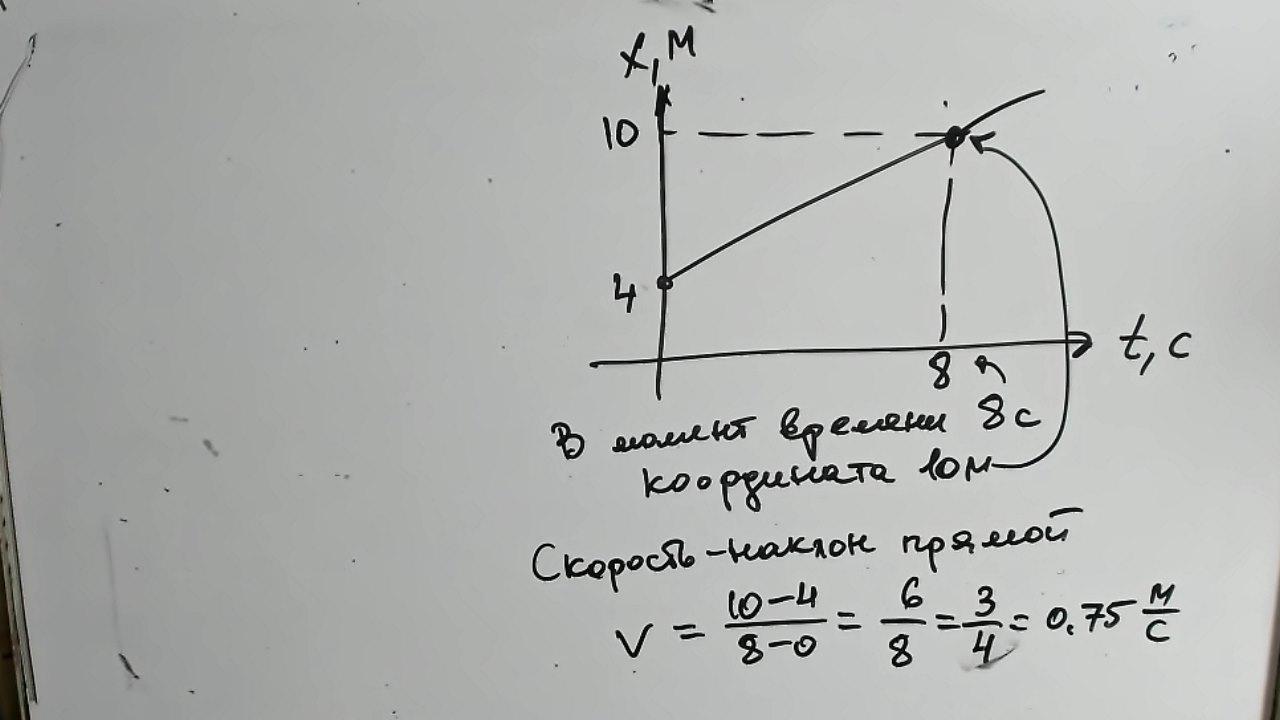 x, м
10
4
8
t, с
В момент времени 8с
координата 10м
Скорость - наклон прямой
v = (10-4)/(8-0) = 6/8 = 3/4 = 0.75 м/с